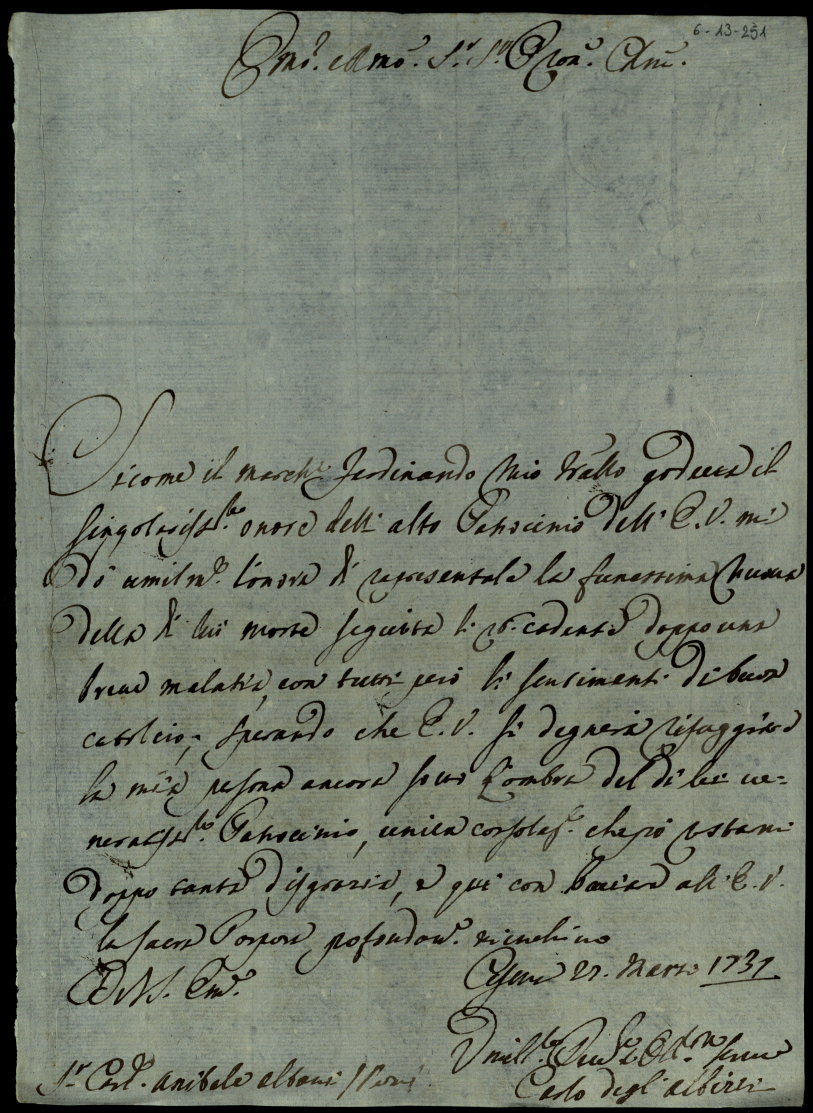 6-13-251
Emo. e Rmo. Sr. Sr. Pron. Colmo.
Sicome il march. Ferdinando mio Fratello godeva il
singolariss. onore dell' alto Patrocinio dell' E. V. mi
dò umilm. l'onore di rapresentale la funestissima nuova
della di lui morte seguita li 26. cadente doppo una
breve malatia, con tutti però li sentimenti di buon
catolico; sperando che E. V. si degnerà rifuggiare
la mia persona ancora sotto l'ombra del di lei ve=
neratiss. Patrocinio, unica consolaz. che può restarmi
doppo tanta disgrazia, e qui con baciare all' E. V.
la sacra Porpora profondam. m'inchino
D. V. Em.
Cesena 27. Marzo 1731
Umill. Dev. Obl. Serve
Sr. Card. Anibale Albani / Roma
Carlo degl' Albizzi